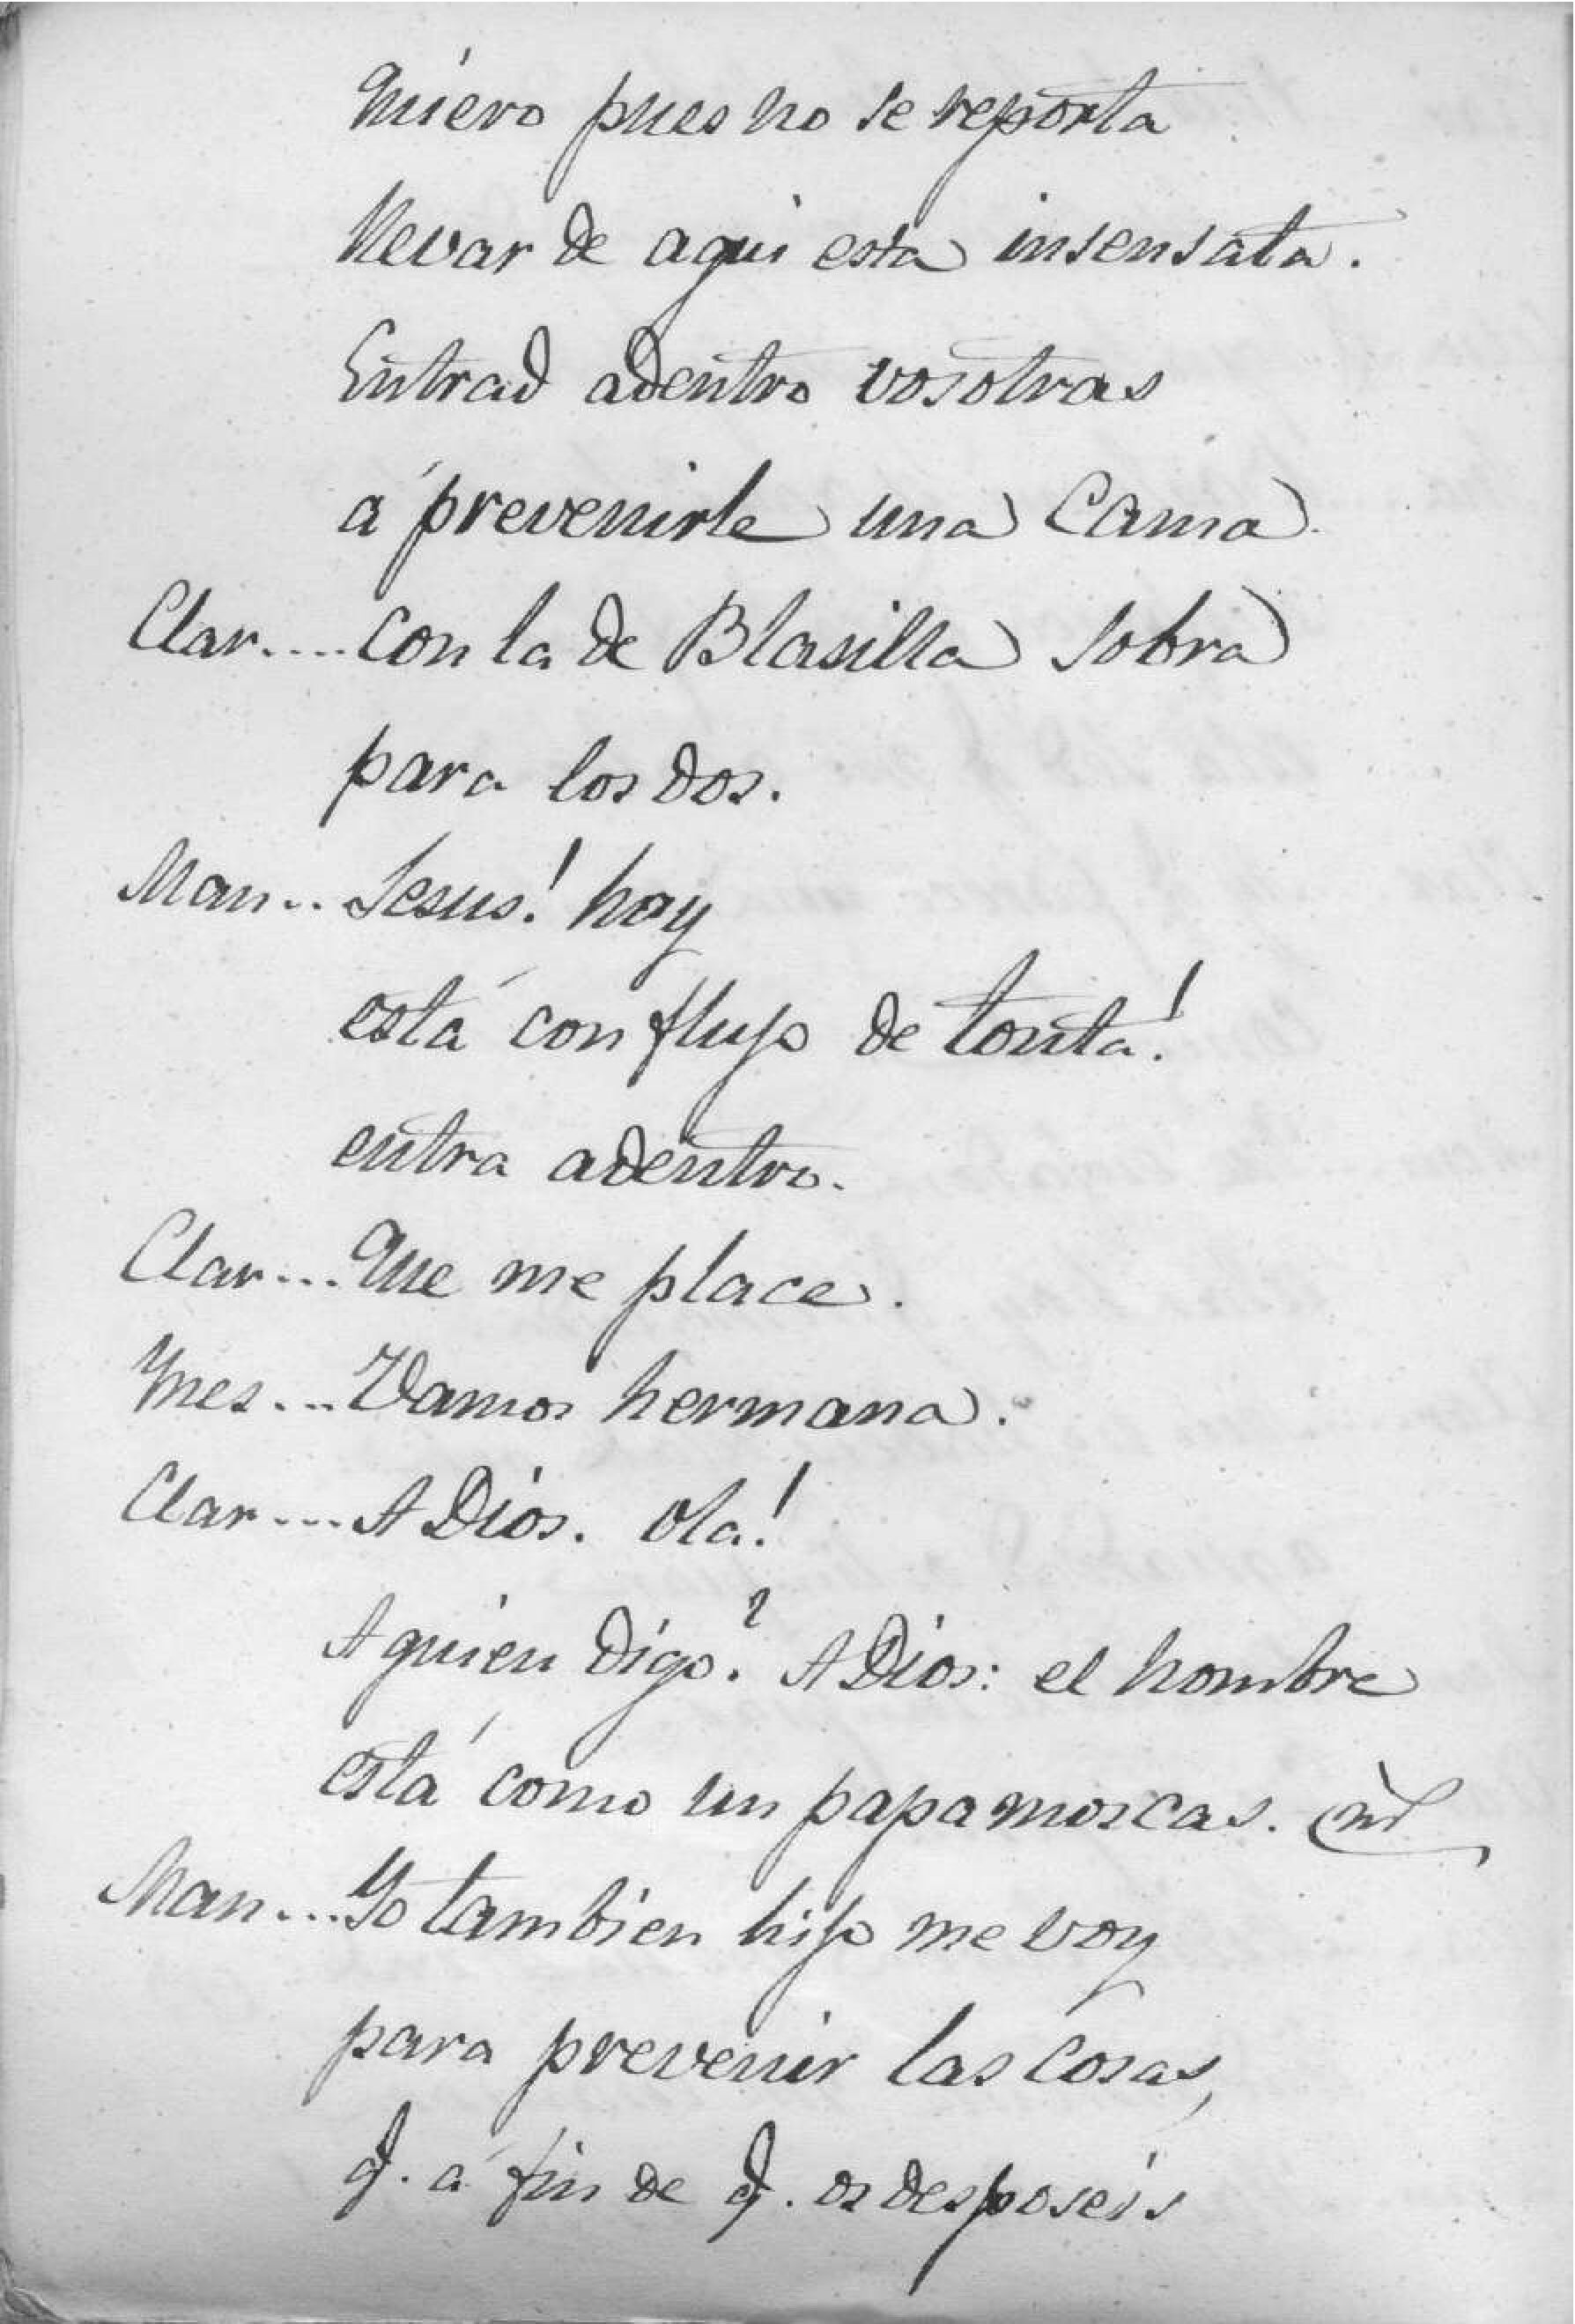 Quiero pues no se reporta
llevar de aqui esta insensata.
Entrad adentro vosotras
á prevenirle una Cama
Clar.... con la de Blasilla sobra
para los dos.
Man.. Jesus! hoy
está con flujo de tonta!
entra adentro.
Clar... Que me place.
Ynes... Vamos hermana.
Clar... A Dios. Ola!
A quien digo? A Dios: el hombre
está como un papamoscas.
Man... Yo tambien hijo me voy
para prevenir las cosas,
q. á fin de q. os desposeis